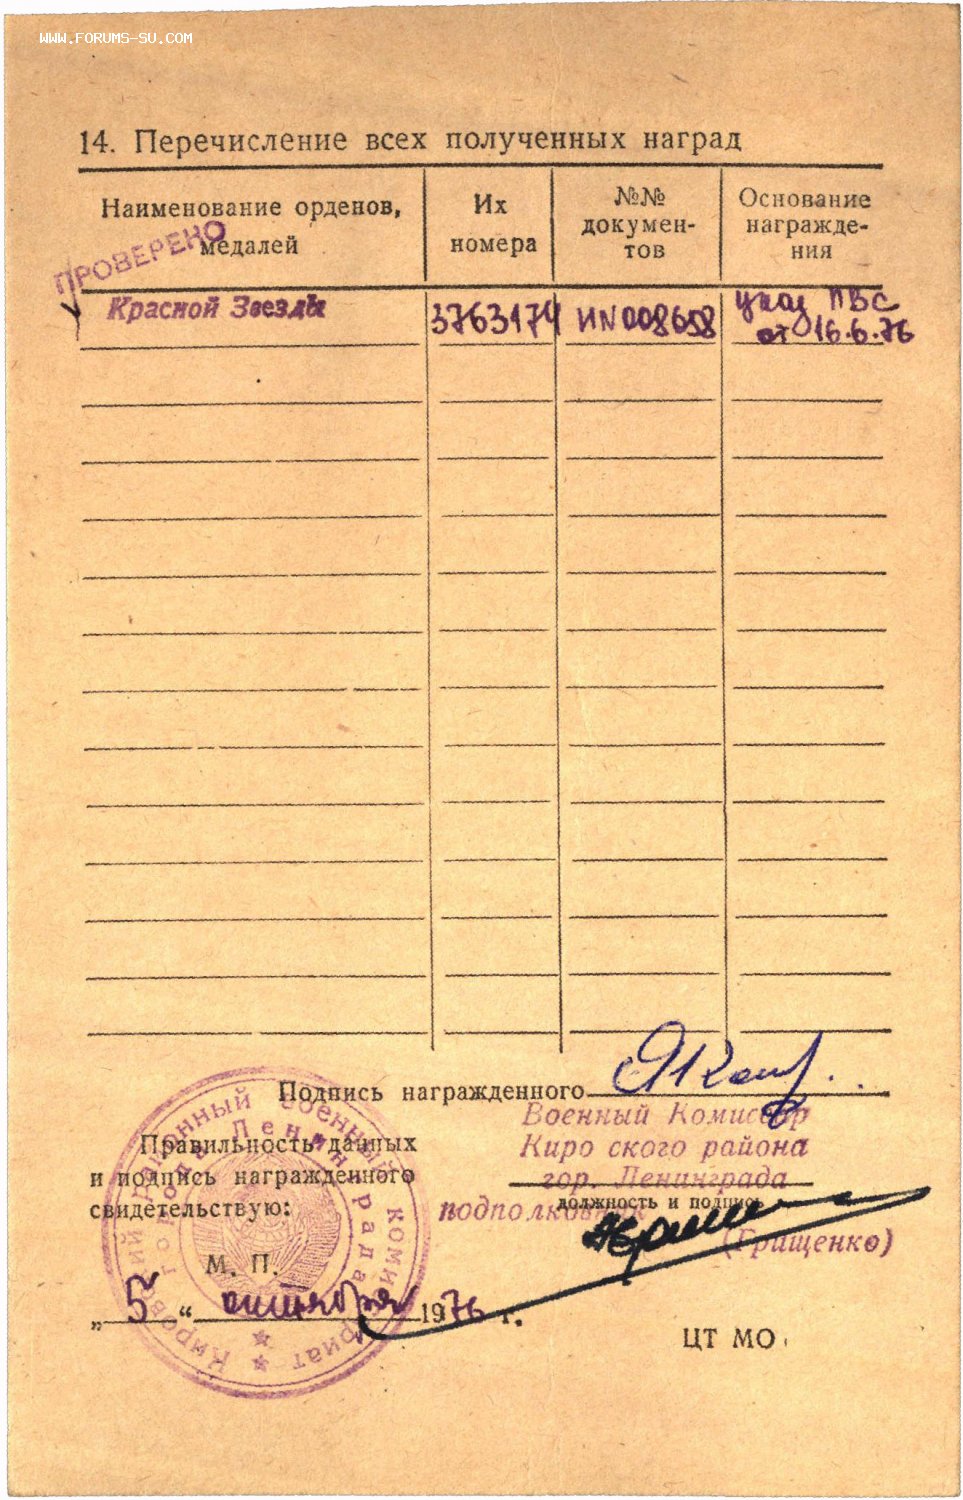 WWW.FORUMS-SU.COM
14. Перечисление всех полученных наград
Наименование орденов, медалей
Их номера
№№ докумен-
тов
Основание
награжде-
ния
ПРОВЕРЕНО
Красной Звезды 3763174 ИN008658 указ ПВС
от 16.6.76
Подпись награжденного
Военный Комиссар
Правильность данных
Киро ского района
и подпись награжденного
гор. Ленинграда
свидетельствую:
должность и подпись
подполковник
(Грищенко)
М. П.
„5“ октября 1976 г.
ЦТ МО
Кировский районный военный комиссариат
города Ленинграда